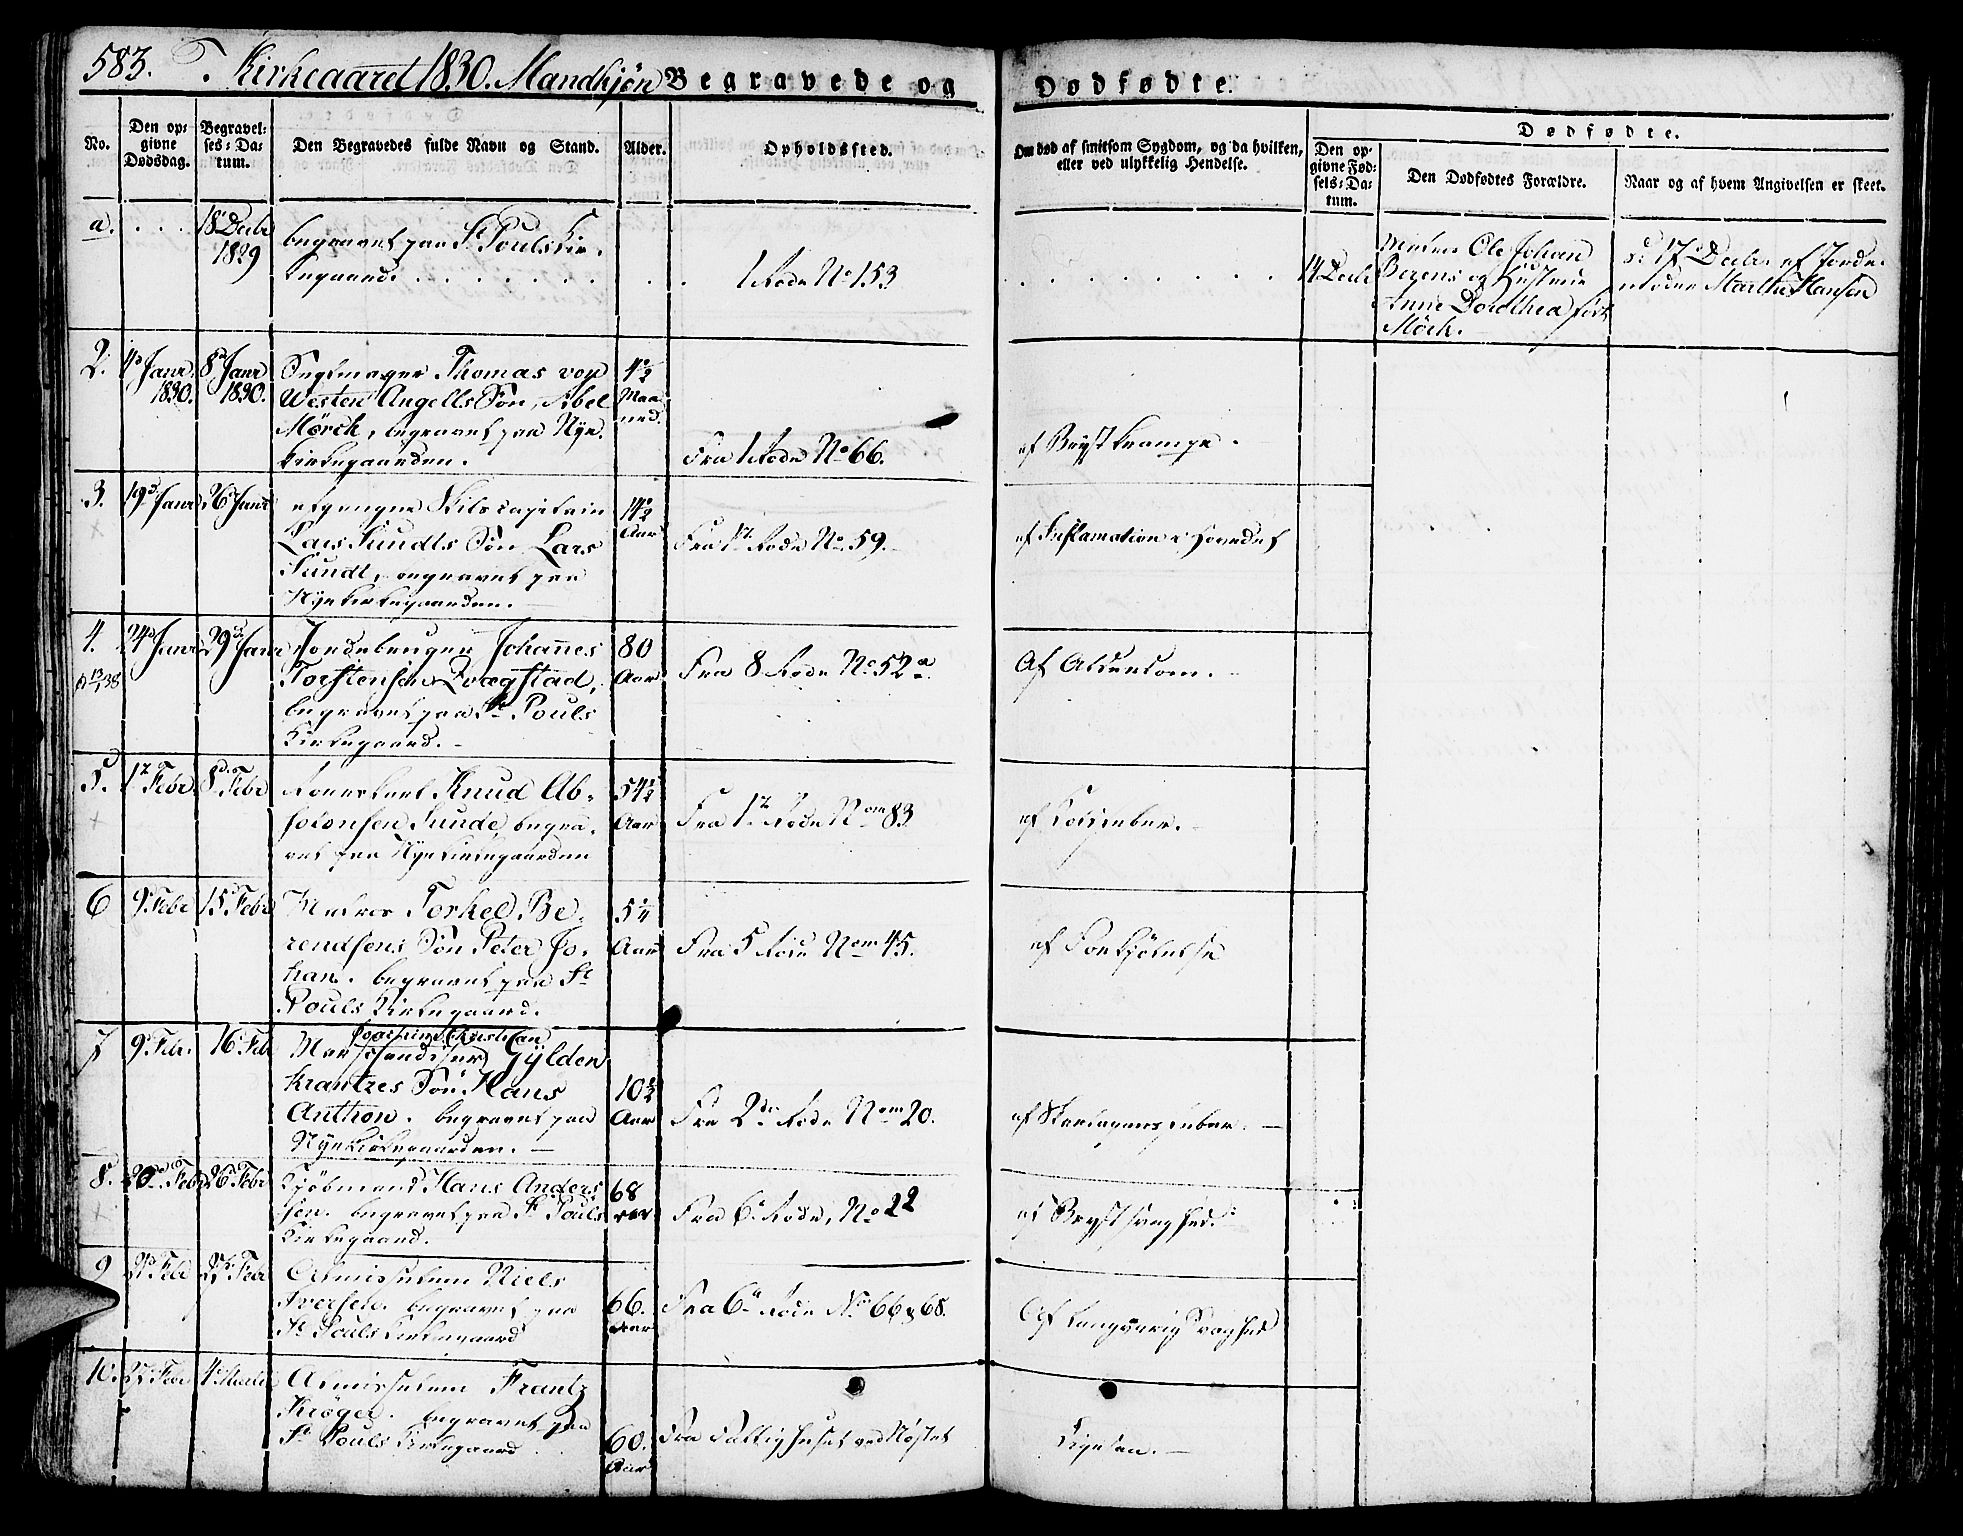 583. I Kirkeaaret 1830. Mandkjøn Begravede og Dødfødte.
No.
Den op-
givne
Dødsdag.
Begravel-
ses-Da-
tum.
Den Begravedes fulde Navn og Stand.
Alder.
Opholdssted.
Om død af smitsom Sygdom, og da hvilken,
eller ved ulykkelig Hendelse.
Dødfødte.
Den op-
givne Fød-
sels-Da-
tum.
Den Dødfødtes Forældre.
Naar og af hvem Angivelsen er skeet.
a.
18 Decbr
1829
begravet paa St Pouls Kir-
kegaard
1 Rode No 153
14 Decbr
Ole Johan
Berens og Hustrue
Anne Dorothea født
Mörk.
d: 17 Decbr. af Jorde-
moder Marthe Hansen
2.
4d Janr
1830.
8d Janr
1830.
Thomas von
Westen Angells Søn, Abel
Mörch, begravet paa Nye
Kirkegaarden.
4½
Maa-
ned.
Fra 1 Rode No 66.
af Brystkrampe.
3.
19d Janr
26d Janr
afgangne Skibscapitain
Lars Sundts Søn Lars
Sundt, begravet paa
Nye Kirkegaarden.
14½
Aar
Fra 1te Rode No 59.
af Inflamation i Hovedet
4.
24d Janr
29d Janr
Jordebruger Johannes
Torstensen Qvægstad,
begravet paa St. Pouls
Kirkegaard.
80
Aar
Fra 8 Rode No 52 a.
Af Alderdom.
5.
1te Febr
8d Febr
Knud Ab-
solonsen Sunde, begra-
vet paa Nye Kirkegaarden
54½
Aar
Fra 1te Rode Nom 83
af
6
9d Febr
15d Febr
Torkel Be-
rendsens Søn Peter Jo-
han. begravet paa St
Pouls Kirkegaard.
5¼
Aar
Fra 5 Rode Nom 45.
af Forkjølelse
7
9d Febr.
16d Feb
Joachim Christian
Gylden-
krantzes Søn Hans
Anthon. begravet paa
Nye Kirkegaarden.
10½
Aar
Fra 2de Rode Nom 20.
af Skarlagensfeber.
8.
20de Febr
26d Febr
Kjøbmand Hans Anders-
sen. begravet paa St Pouls
Kirkegaard.
68
Aar
Fra 6te Rode, No 22
af Brystsvaghed.
9
21d Febr
27d Febr
Almisselem Niels
Iversen. begravet paa
St Pouls Kirkegaard
66.
Aar
Fra 6te Rode No 66 & 68.
Af langvarig Svaghed
10.
27 Febr
4d Martii
Almisselem Frantz
Krøger. begravet paa
St Pouls Kirkegaard
60.
Aar
Fra Fattighuset ved Nøstet